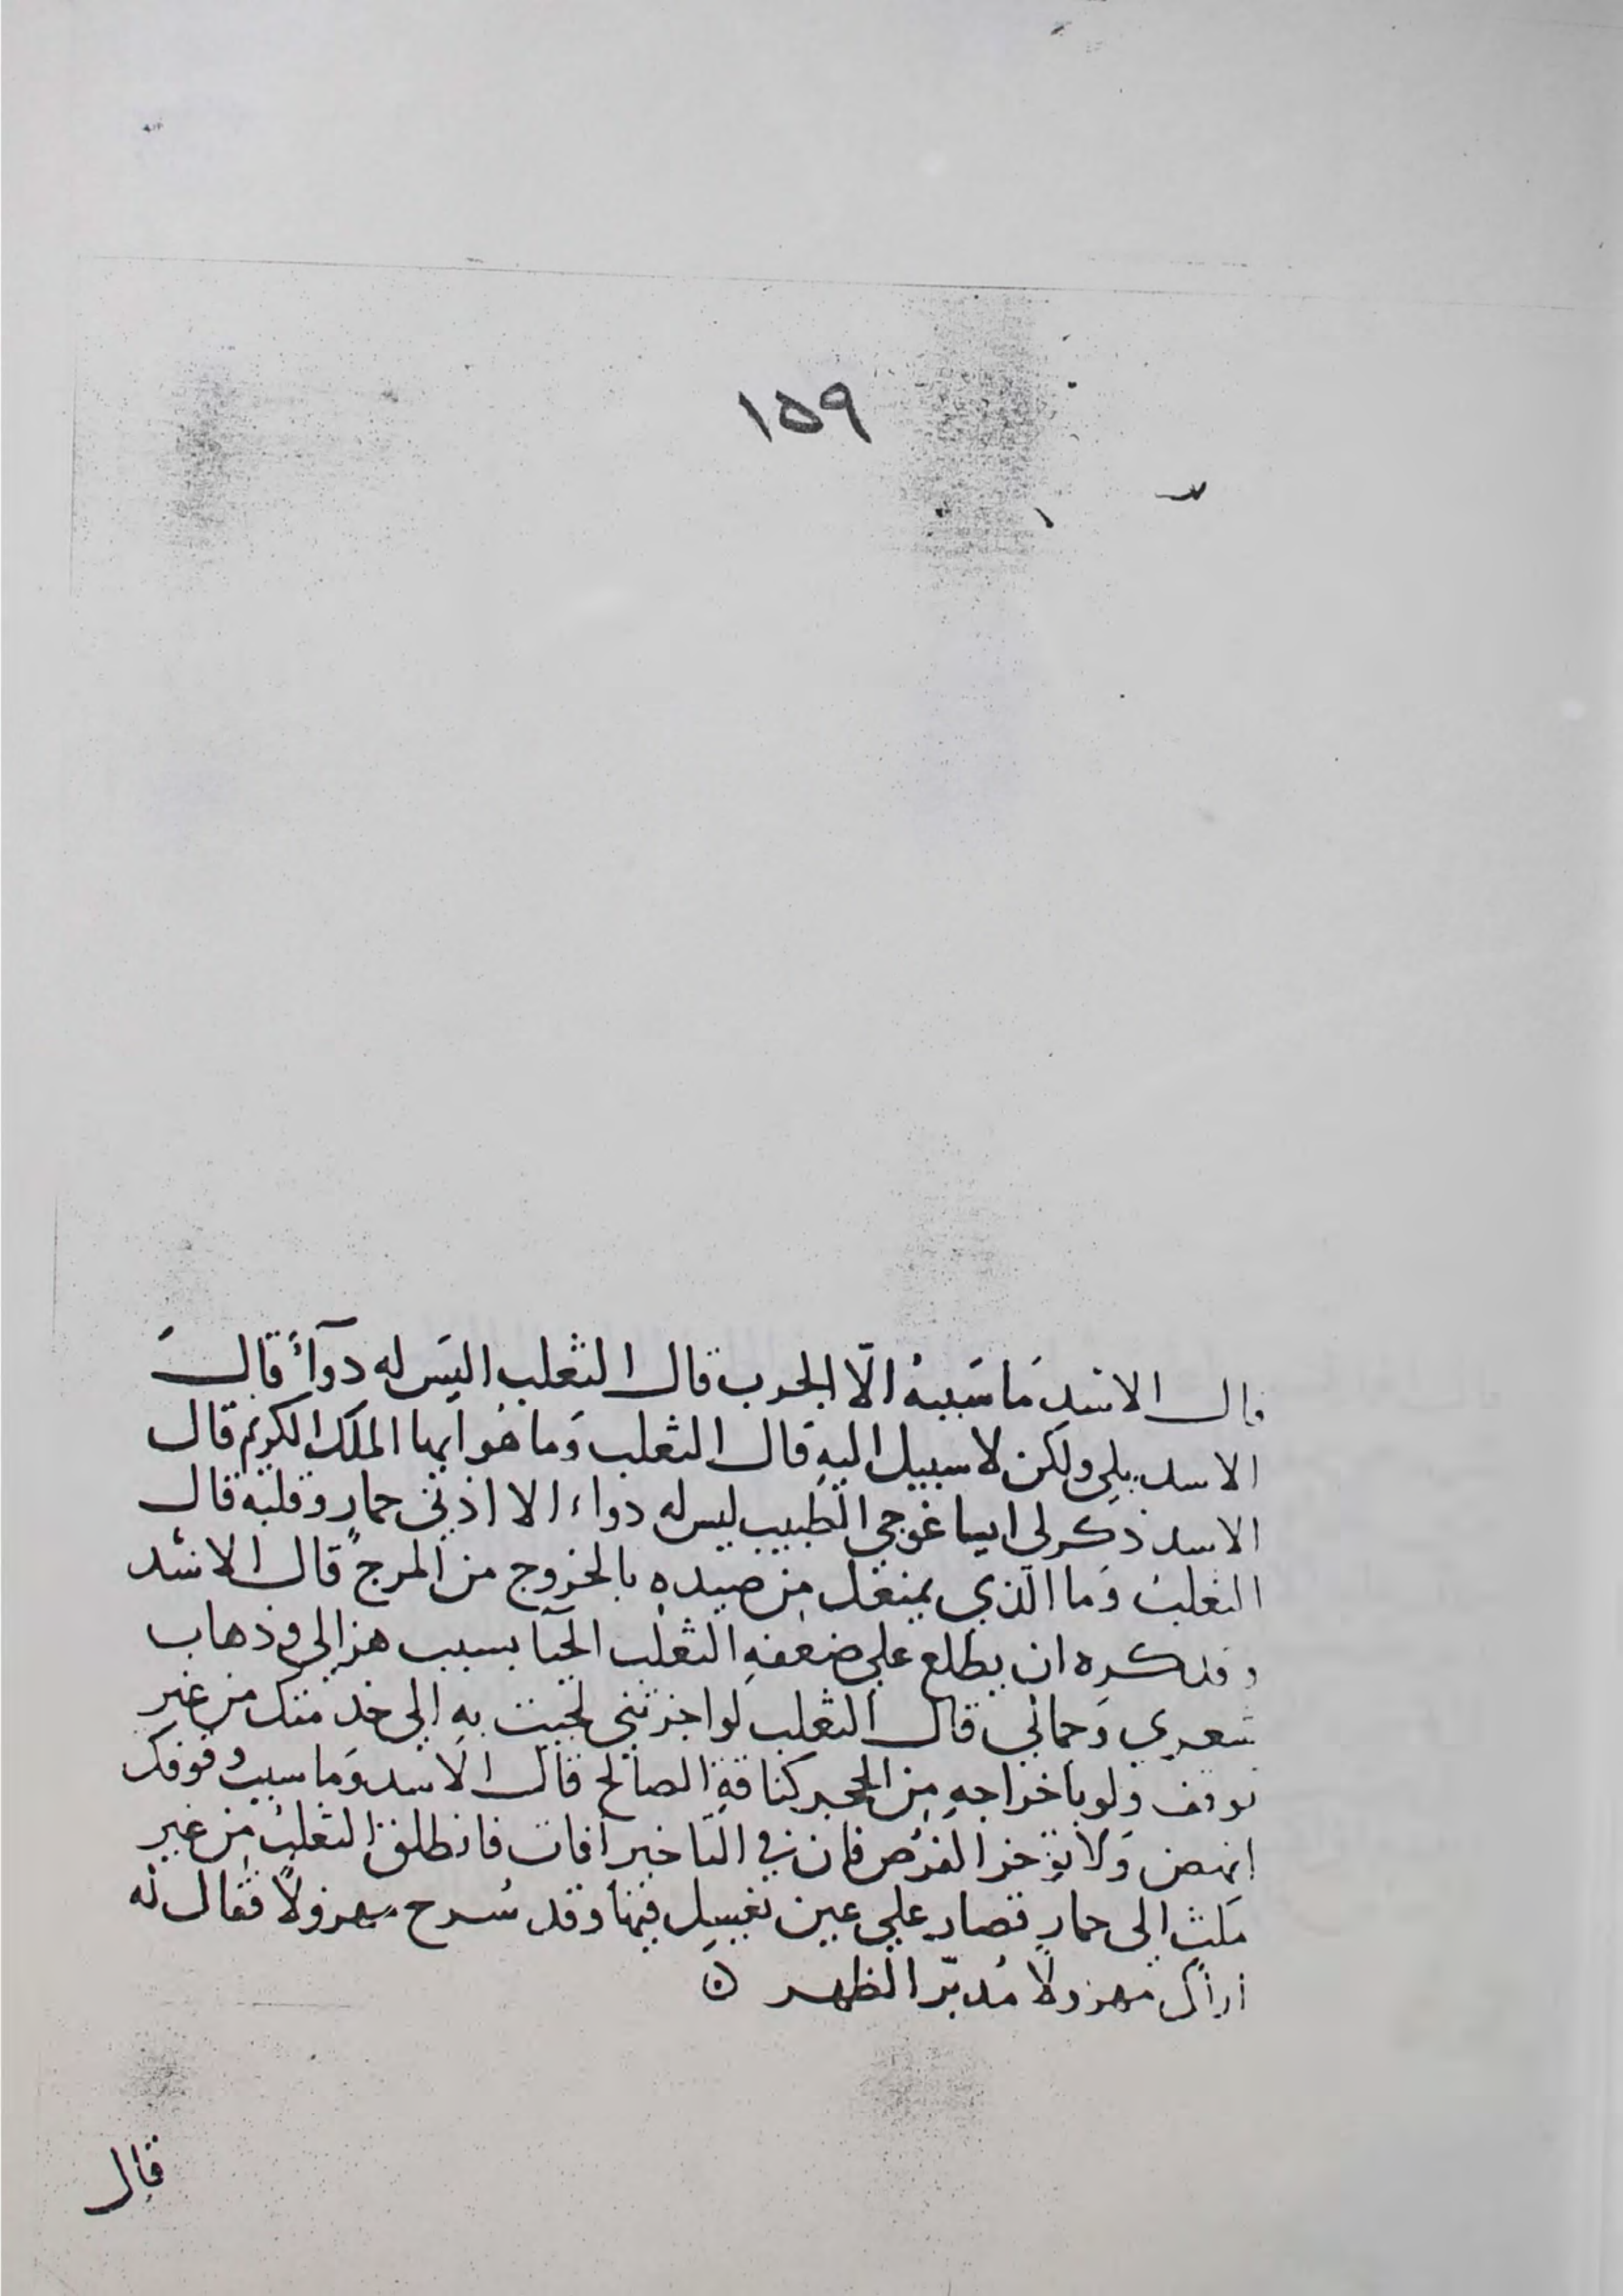 ١٥٩
قال الاسد مَا سَببهُ الّا الجرب قال الثعلب اليَس له دوآءً قالَ
الاسد بلي ولكن لا سبيل اليهِ قال الثعلب وَما هُو ايها الملك الكريم قال
الاسد ذكر لي ايساغوجي الطبيب ليس له دواء الا اذني حمارٍ وقلبه قال
الثعلب وَما الّذي يمنعك من صيدهِ بالخروج من المرج قال الاسد
وقد كره ان يطلع علي ضعفهِ الثعلب الحيا بسبب هزالي وذهاب
شعري وَحماني قال الثعلب لو اجزتني لجيت بهِ الي خدمتك من غير
توقف ولو باخراجهِ مِن الحجر كناقةِ الصالح قال الاسد وَما سبب وقوفك
انهض وَلا تؤخر الفرص فان في التاخير آفات فانطلق الثعلبُ من غير
مَكث الي حمارٍ قصار علي عين تغسل فيها وقد سُرح مهزولًا فقال له
اراك مهزولًا مُدبّر الظهر ه
قال